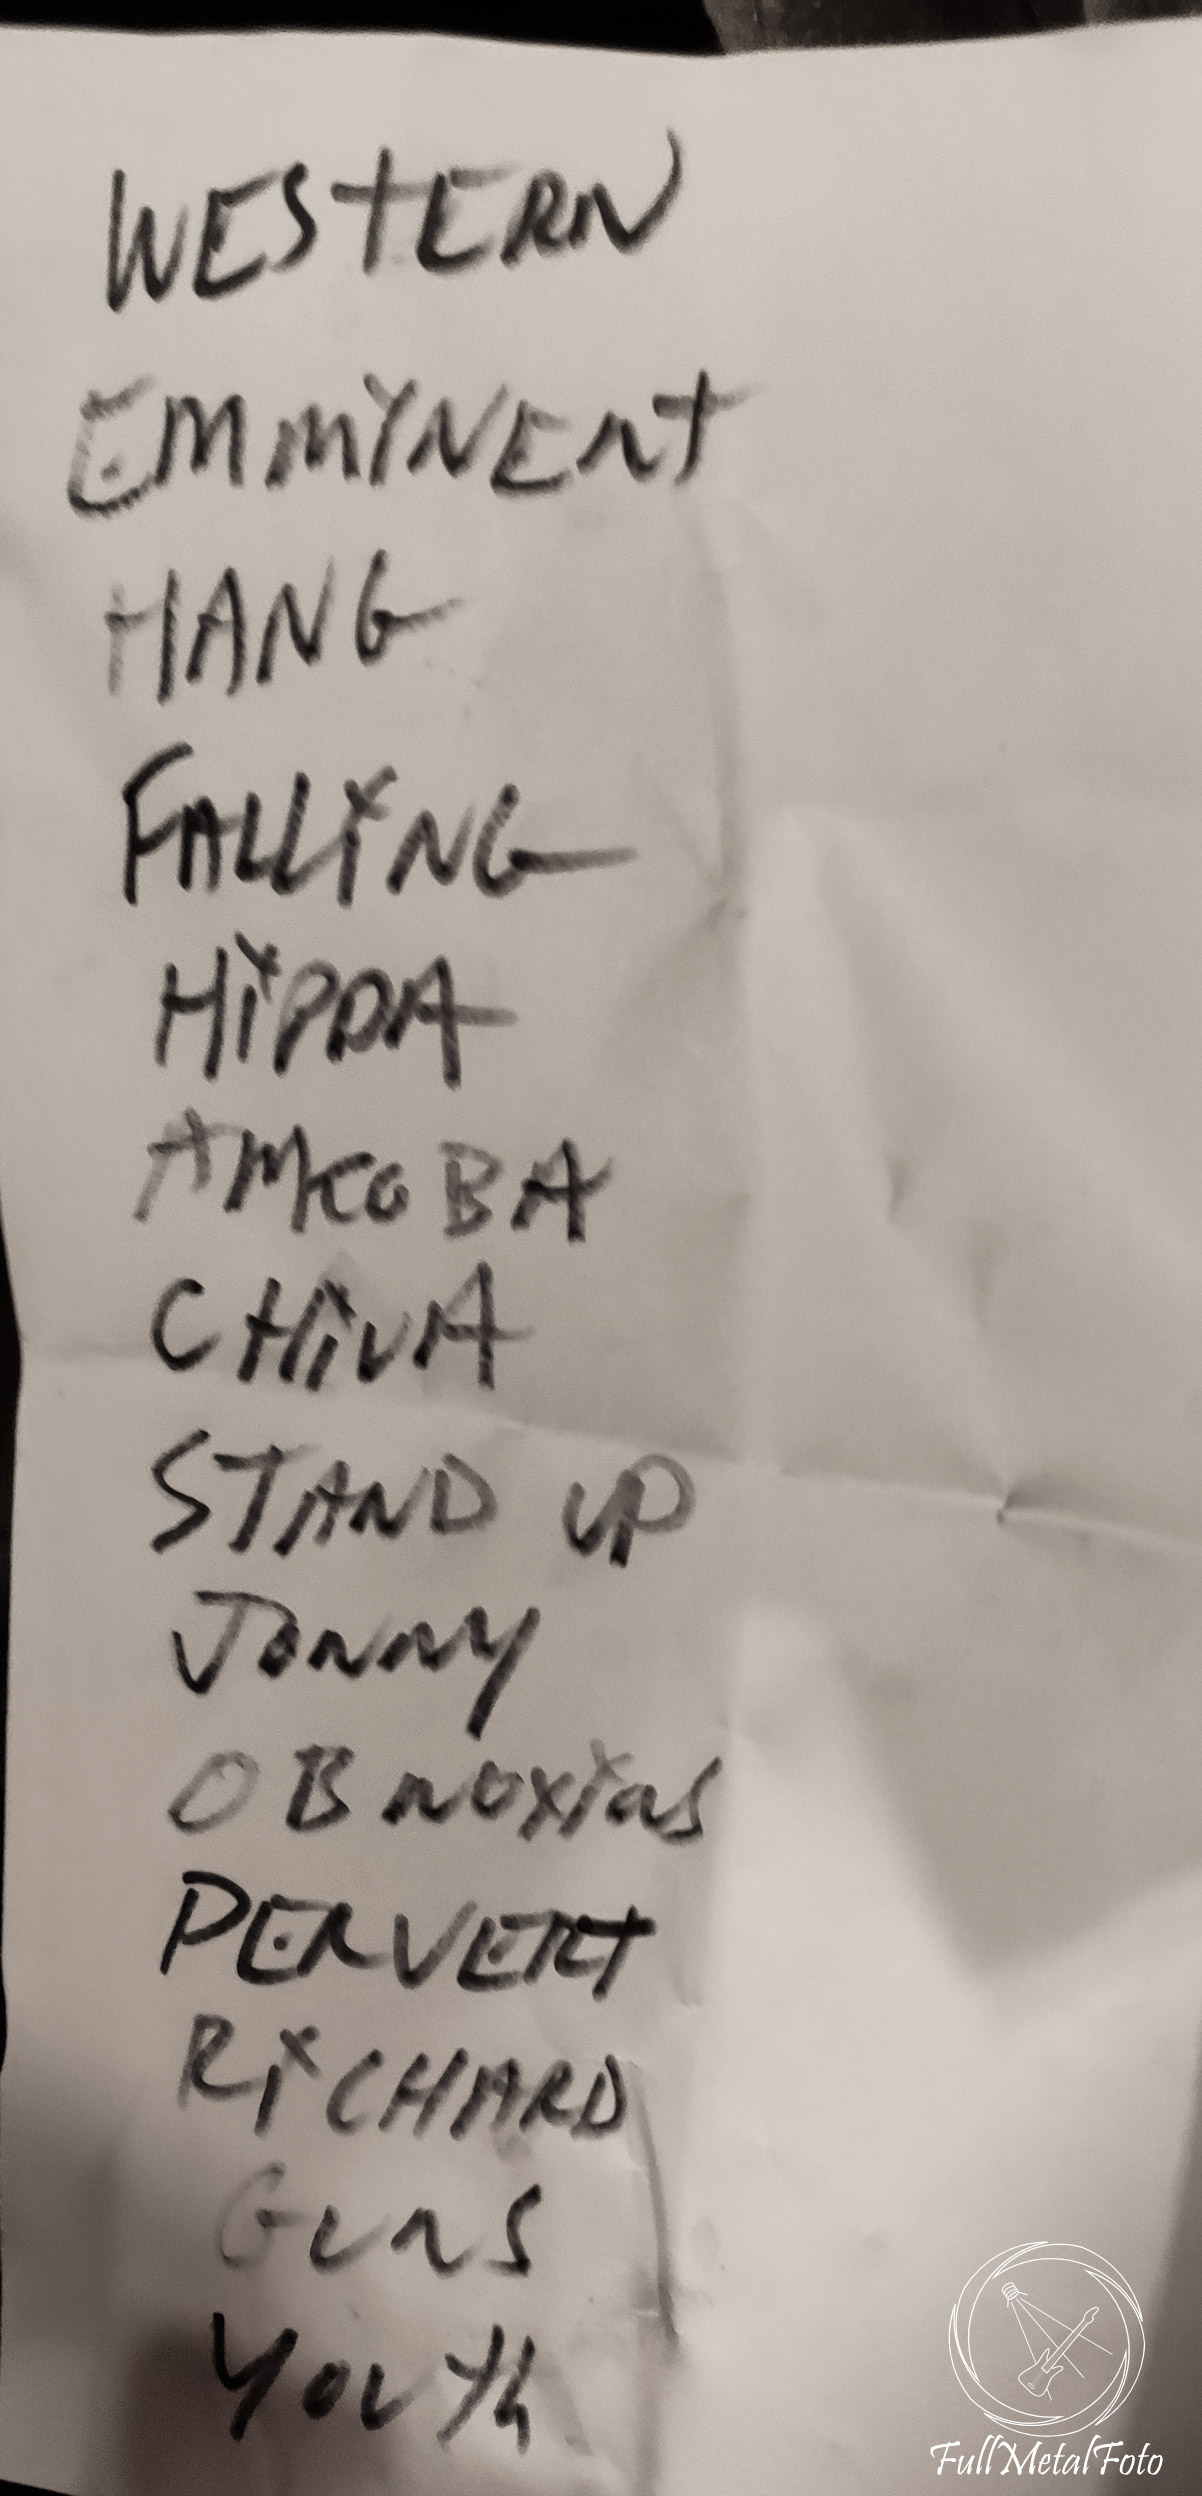 WESTERN
EMMINENT
HANG
FALLiNG
HiPPA
AMEOBA
CHiVA
STAND UP
JONNY
OBNOXiUS
PERVERT
RiCHARD
GUNS
YOUTh
FullMetalFoto